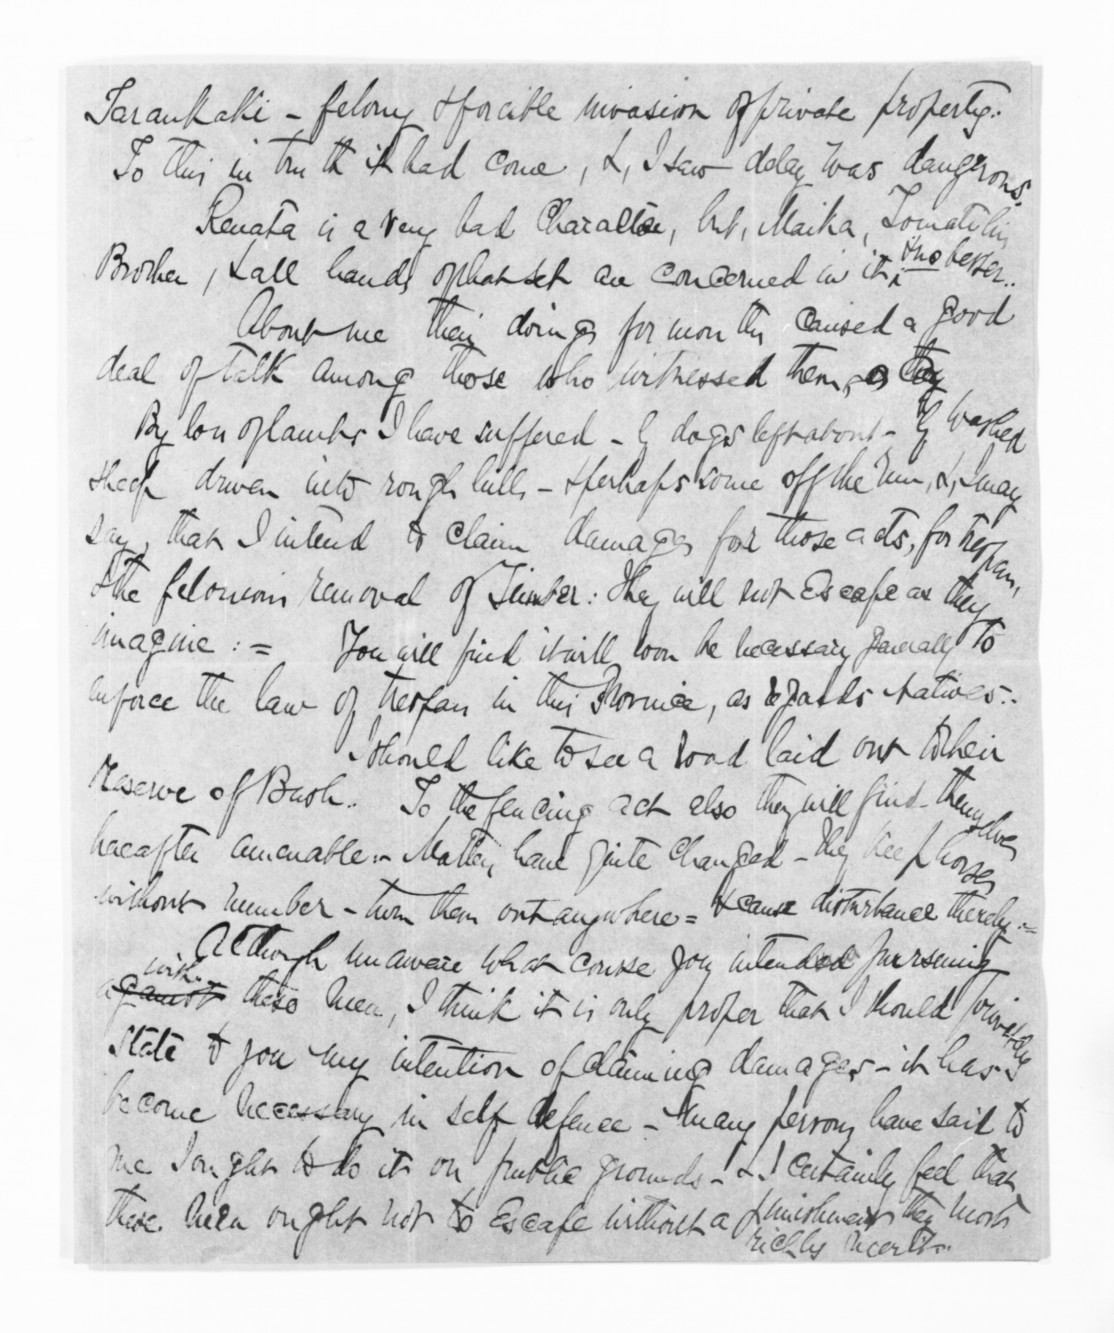 Tarankaki - felony & forcible invasion of private property:
To this in truth it had come, &, I saw delay was dangerous.
Renata is a very bad Character, but, Maika, Tomati his
Brother, & all hands of that set are concerned in it, & no better..
About me their doings for months caused a good
deal of talk among those who witnessed them,
By loss of lambs I have suffered - by dogs left about - by washed
sheep driven into rough hills - & perhaps some off the run, &, I may
say, that I intend to claim damages for those acts, for trespass,
& the felonious removal of Timber: They will not Escape as they
imagine := You will find it will soon be necessary generally to
enforce the law of trespass in this Province, as regards Natives:.
I should like to see a road laid out to their
Reserve of Bush.. To the fencing act also they will find themselves
hereafter amenable:- Matters have quite Changed - they keep horses
without number - turn them out anywhere = & cause disturbance thereby:=
Although unaware what course you intended pursuing
with ~~against~~ these men, I think it is only proper that I should privately
state to you my intention of claiming damages - it has
become necessary in self defence - many persons have said to
me I ought to do it on public grounds - & I certainly feel that
these men ought not to Escape without a punishment they most
richly merit:-